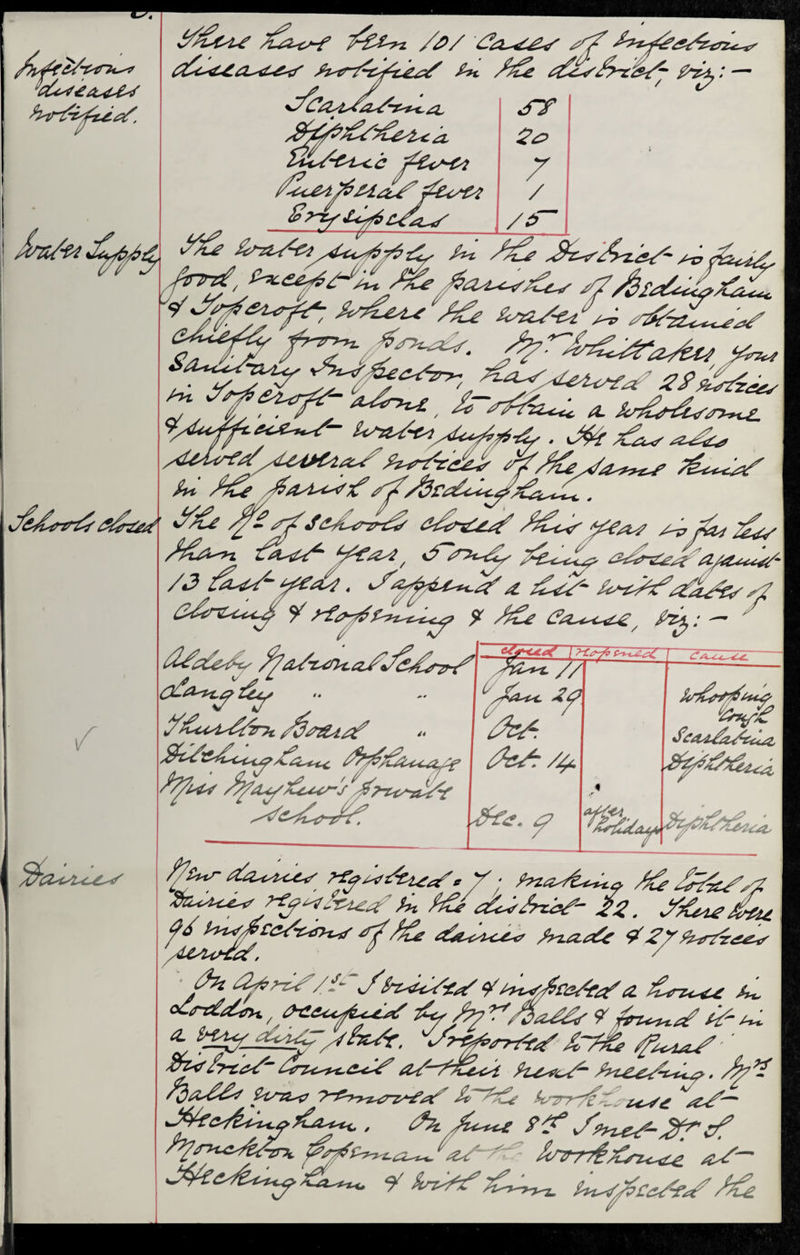 There have been 101 cases of infectious
Infectious diseases notified.
diseases notified in the district, viz: —
Scarlatina 58
Diphtheria 20
Enteric fever 7
Puerperal fever 1
Erysipelas 15
Water Supply
The water supply in the District is fairly
good, except in the parishes of Bedingham
& Topcroft, where the water is obtained
chiefly from ponds. Mr. Whittaker, your
Sanitary Inspector, has served 28 notices
in Topcroft alone, to obtain a wholesome
& sufficient water supply. He has also
served several notices of the same kind
in the parish of Bedingham.
Schools closed
The No of schools closed this year is far less
than last year, 5 only being closed against
13 last year. I append a list with dates of
closing & reopening & the cause, viz: —
closed reopened cause
Aldeby National School Jan 11
Langley " " Jan 29 Whooping Cough
Thurlton Board " Oct. Scarlatina
Ditchingham Orphanage Oct. 14 Diphtheria
Miss Mayhew's private
school. Dec. 9 after holidays Diphtheria
Dairies
New dairies registered = 7; making the total of
Dairies registered in the district 22. There were
96 inspections of the dairies made & 27 notices
served.
On April 1st I visited & inspected a house in
Loddon, occupied by Mrs Balls & found it in
a very dirty state. I reported to the Rural
District Council at their next meeting. Mrs
Balls was removed to the workhouse at
Heckingham. On June 8th I met Dr S.
Monckton Copeman at the Workhouse at
Heckingham & with him inspected the